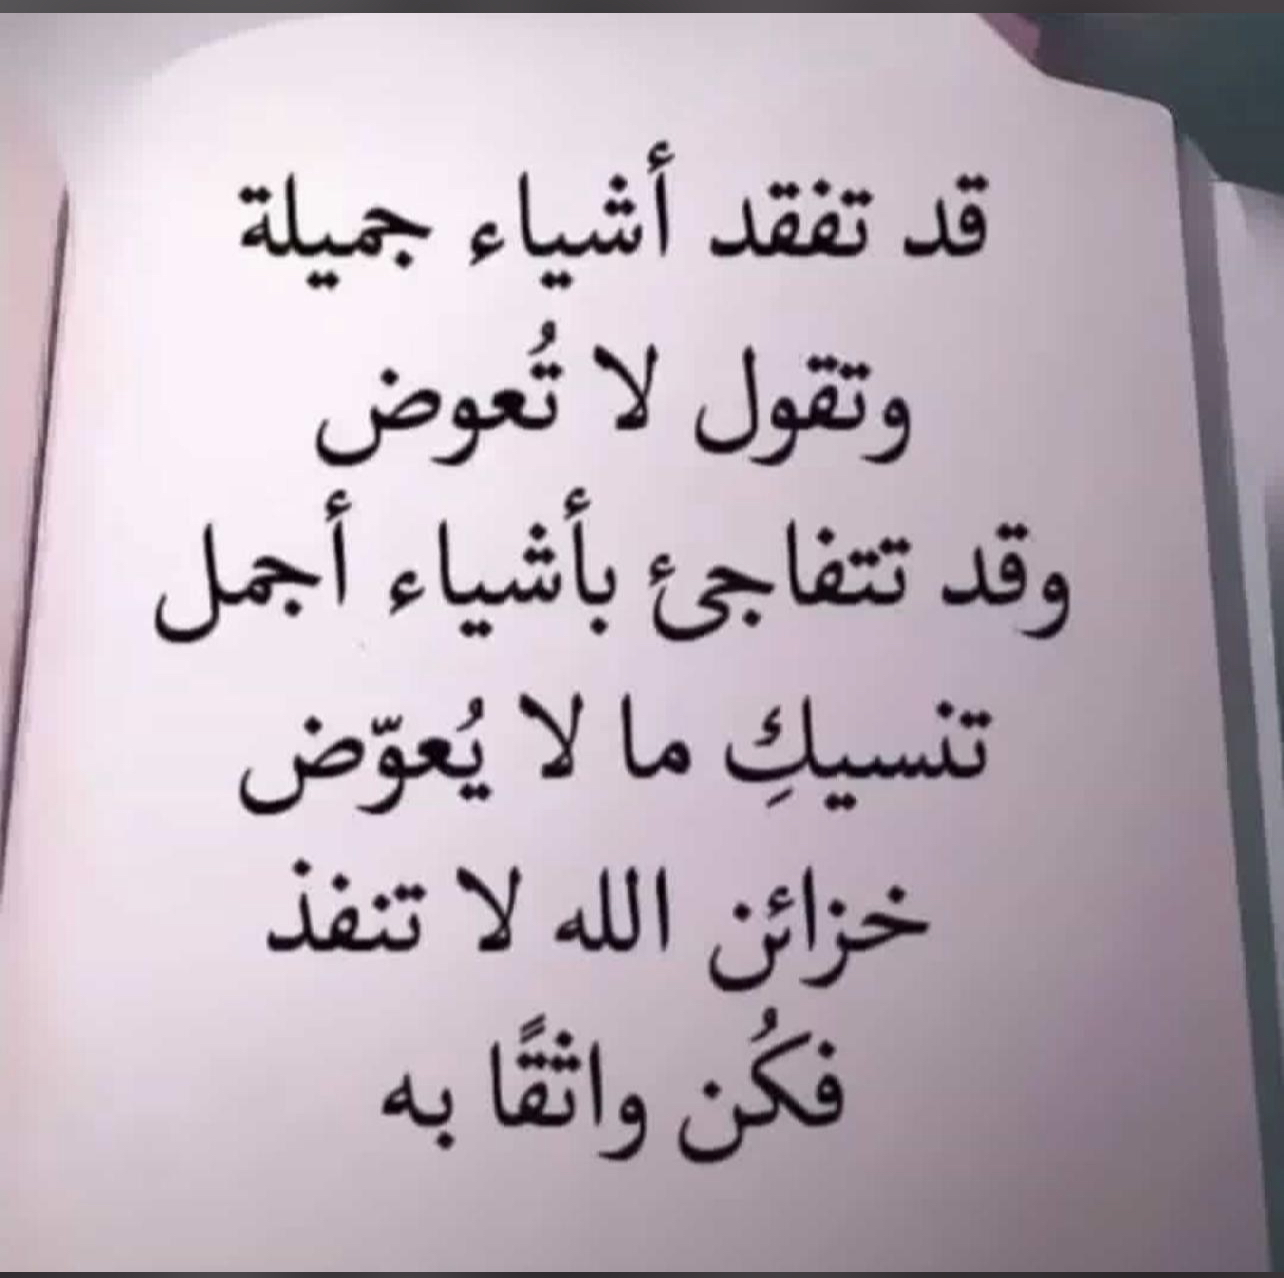 قد تفقد أشياء جميلة
وتقول لا تُعوض
وقد تتفاجئ بأشياء أجمل
تنسيكِ ما لا يُعوّض
خزائن الله لا تنفذ
فكُن واثقًا به